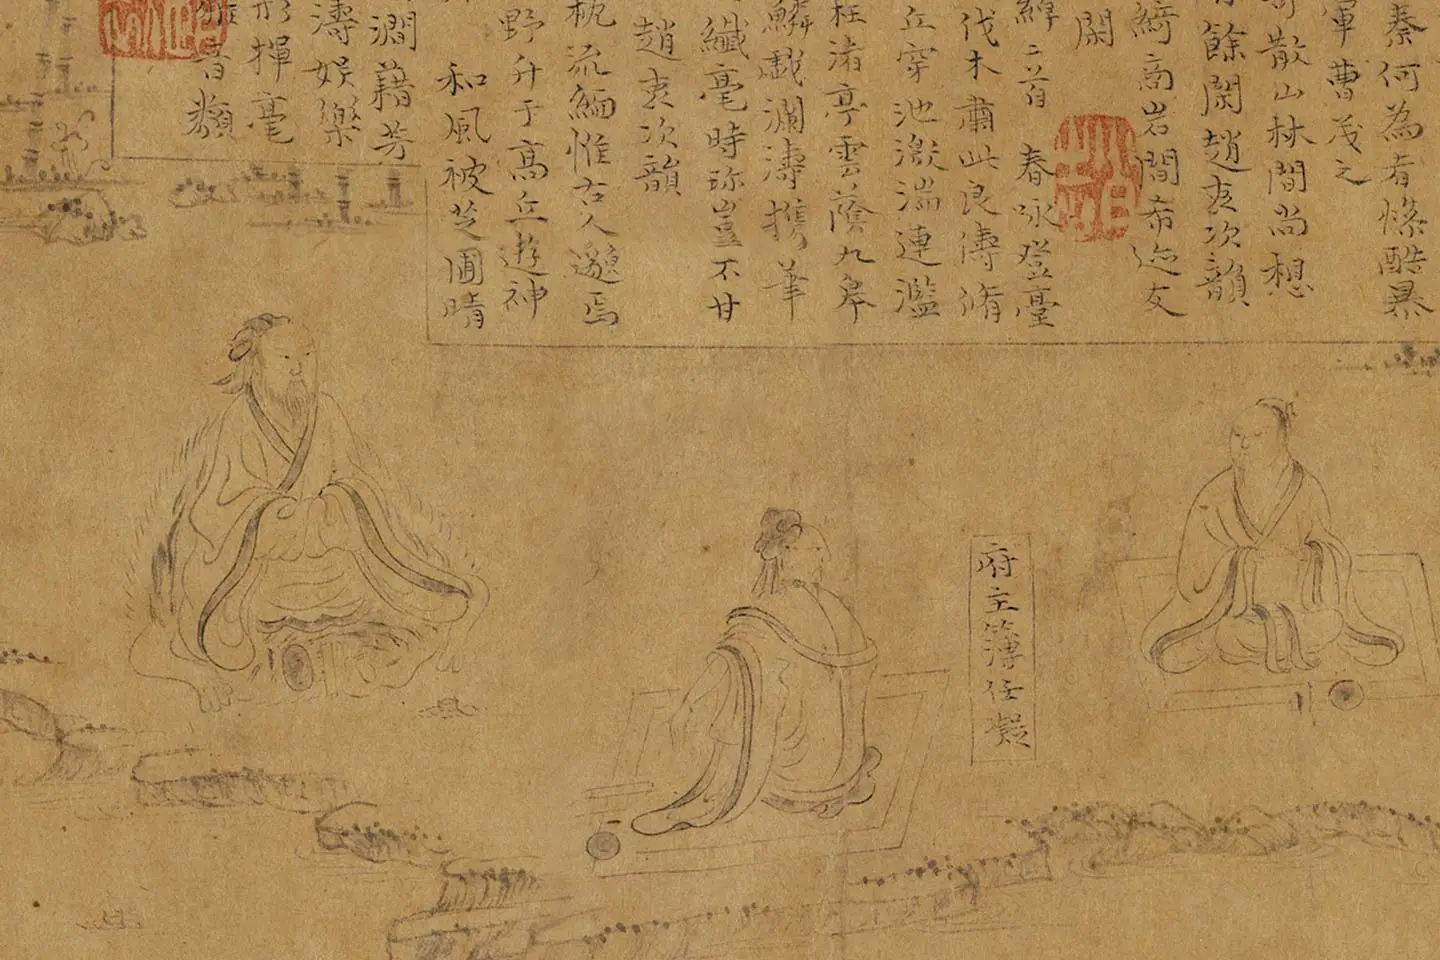 秦何為者慘酷暴
軍曹茂之
散山林間尚想
餘閑趙次韻
綺高岩間希迹友
閑
二首春咏登臺
伐木肅此良儔脩
丘穿池激湍連濫
枉渚亭雲蔭九皋
鱗戲瀾濤攜筆
纖毫時珍豈不甘
趙次韻
流緬惟古人邈焉
野升于高丘遊神
和風被芝圃晴
澗藉芳
濤娛樂
揮毫
音類
府主簿任凝